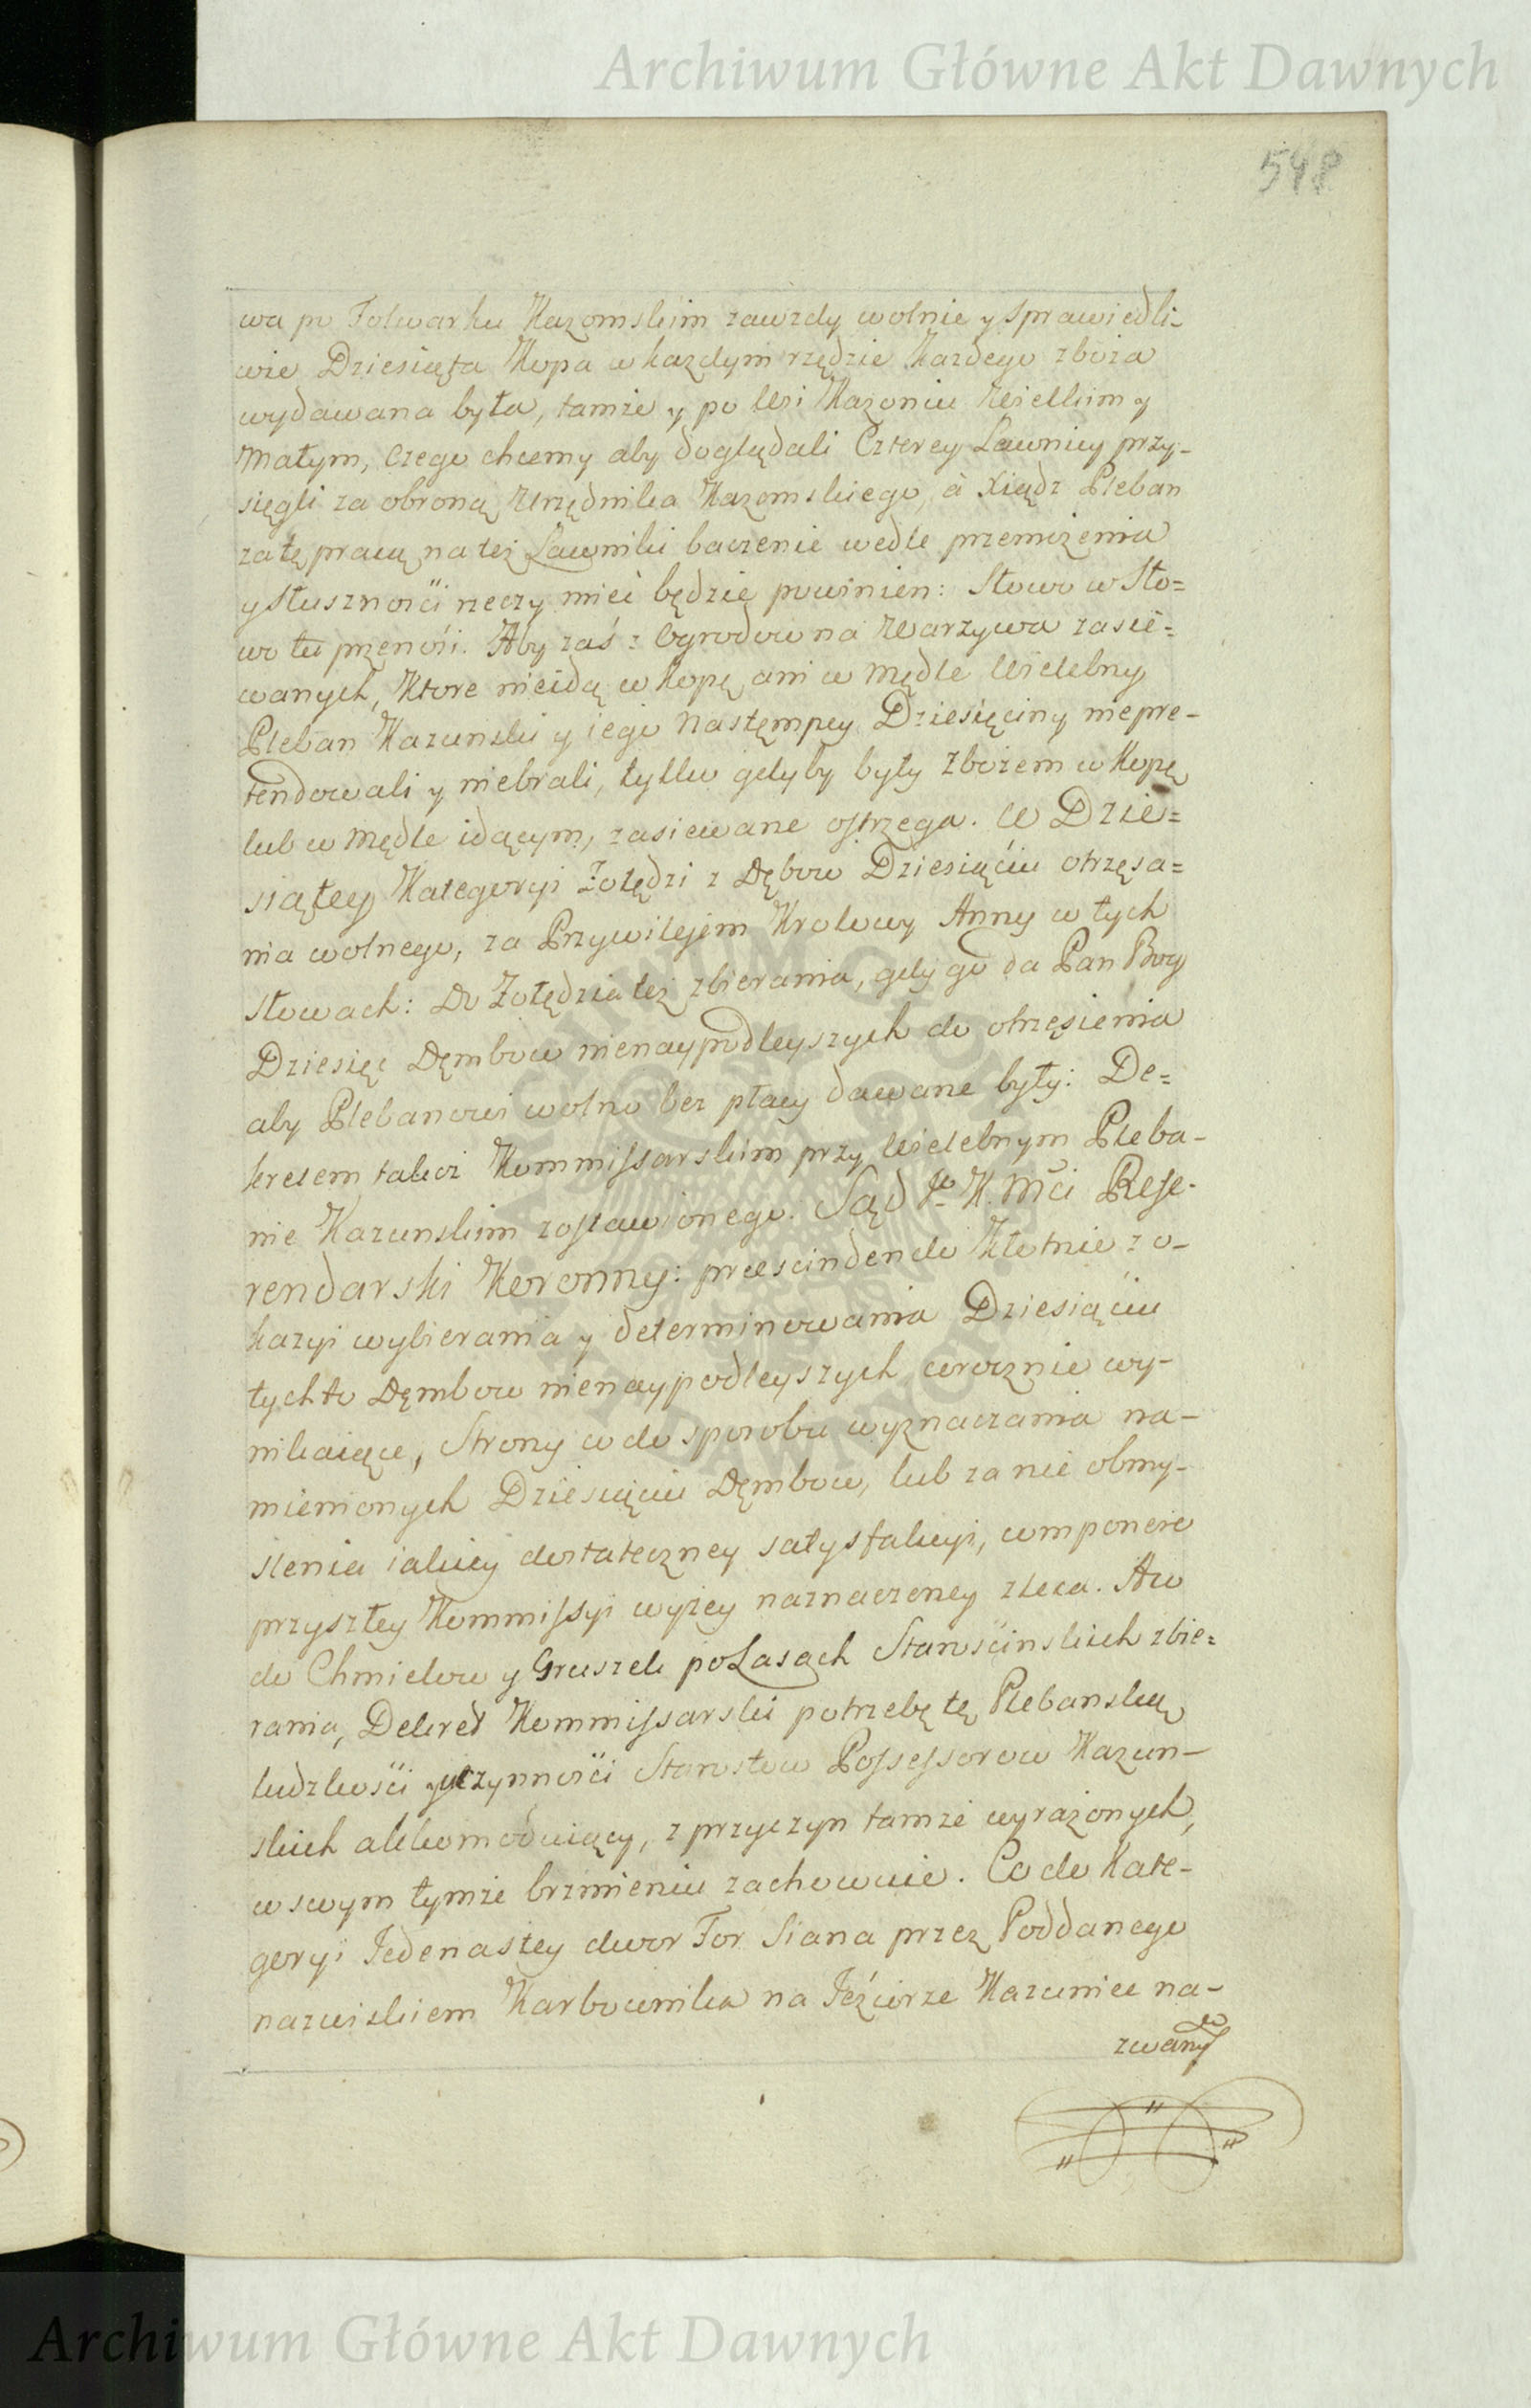 Archiwum Główne Akt Dawnych
548
wa po Folwarku Kazomskim zawzdy wolnie y sprawiedli-
wie Dziesiąta Kopa w kazdym rzędzie Kazdego zboza
wydawana była, tamże y po Wsi Kazoniu Wielkim y
Małym, czego chcemy aby doglądali Czterey Ławnicy przy-
sięgli za obroną Urzędnika Kazomskiego, à Xiądz Pleban
zatę pracą na też Ławniki baczenie wedle przemożenia
y słusznosci rzeczy mieć będzie powinien: Słowo w Sło=
wo tu przenosi. Aby zaś z Ogrodow na Warzywa zasie=
wanych, Ktore nieidą w Kopę ani w Mędle Wielebny
Pleban Kazunski y iego Następcy Dziesięciny niepre-
tendowali y niebrali, tylko gdyby były Zbożem w Kopę
lub w Mędle idącym, zasiewane ostrzega. W Dzie=
siątey Kategoryi Żołędzi z Dębow Dziesiąciu otrzęsa=
nia wolnego, za Przywilejem Krolowy Anny w tych
słowach: Do Żołędzia też zbierania, gdy go da Pan Bog
Dziesięć Dęmbow nienaypodleyszych do otrzęsienia
aby Plebanowi wolno bez płacy dawane były: De=
kretem takoż Kommissarskim przy Wielebnym Pleba-
nie Kazunskim zostawionego. Sąd Jo K. Mci Refe-
rendarski Koronny: præscindendo Kłotnie z o-
kazyi wybierania y determinowania Dziesiąciu
tychto Dęmbow nienaypodleyszych corocznie wy-
nikaiące, Strony co do sposobu wyznaczania na-
mienionych Dziesiąciu Dęmbow, lub za nie obmy-
slenia iakiey dostateczney satysfakcyi, componere
przyszłey Kommissyi wyżey naznaczoney zleca. A co
do Chmielow y Gruszek po Lasach Starościnskich zbie=
rania, Dekret Kommissarski potrzebę tę Plebanską
ludzkości y uczynności Starostow Possessorow Kazun-
skich akkomoduiący, z przyczyn tamże wyrażonych,
w swym tymże brzmieniu zachowuie. Co do Kate-
goryi Jedenastey dwor For Siana przez Poddanego
nazwiskiem Karbownika na Jeźiorze Kazuniec na-
zwanym
Archiwum Główne Akt Dawnych